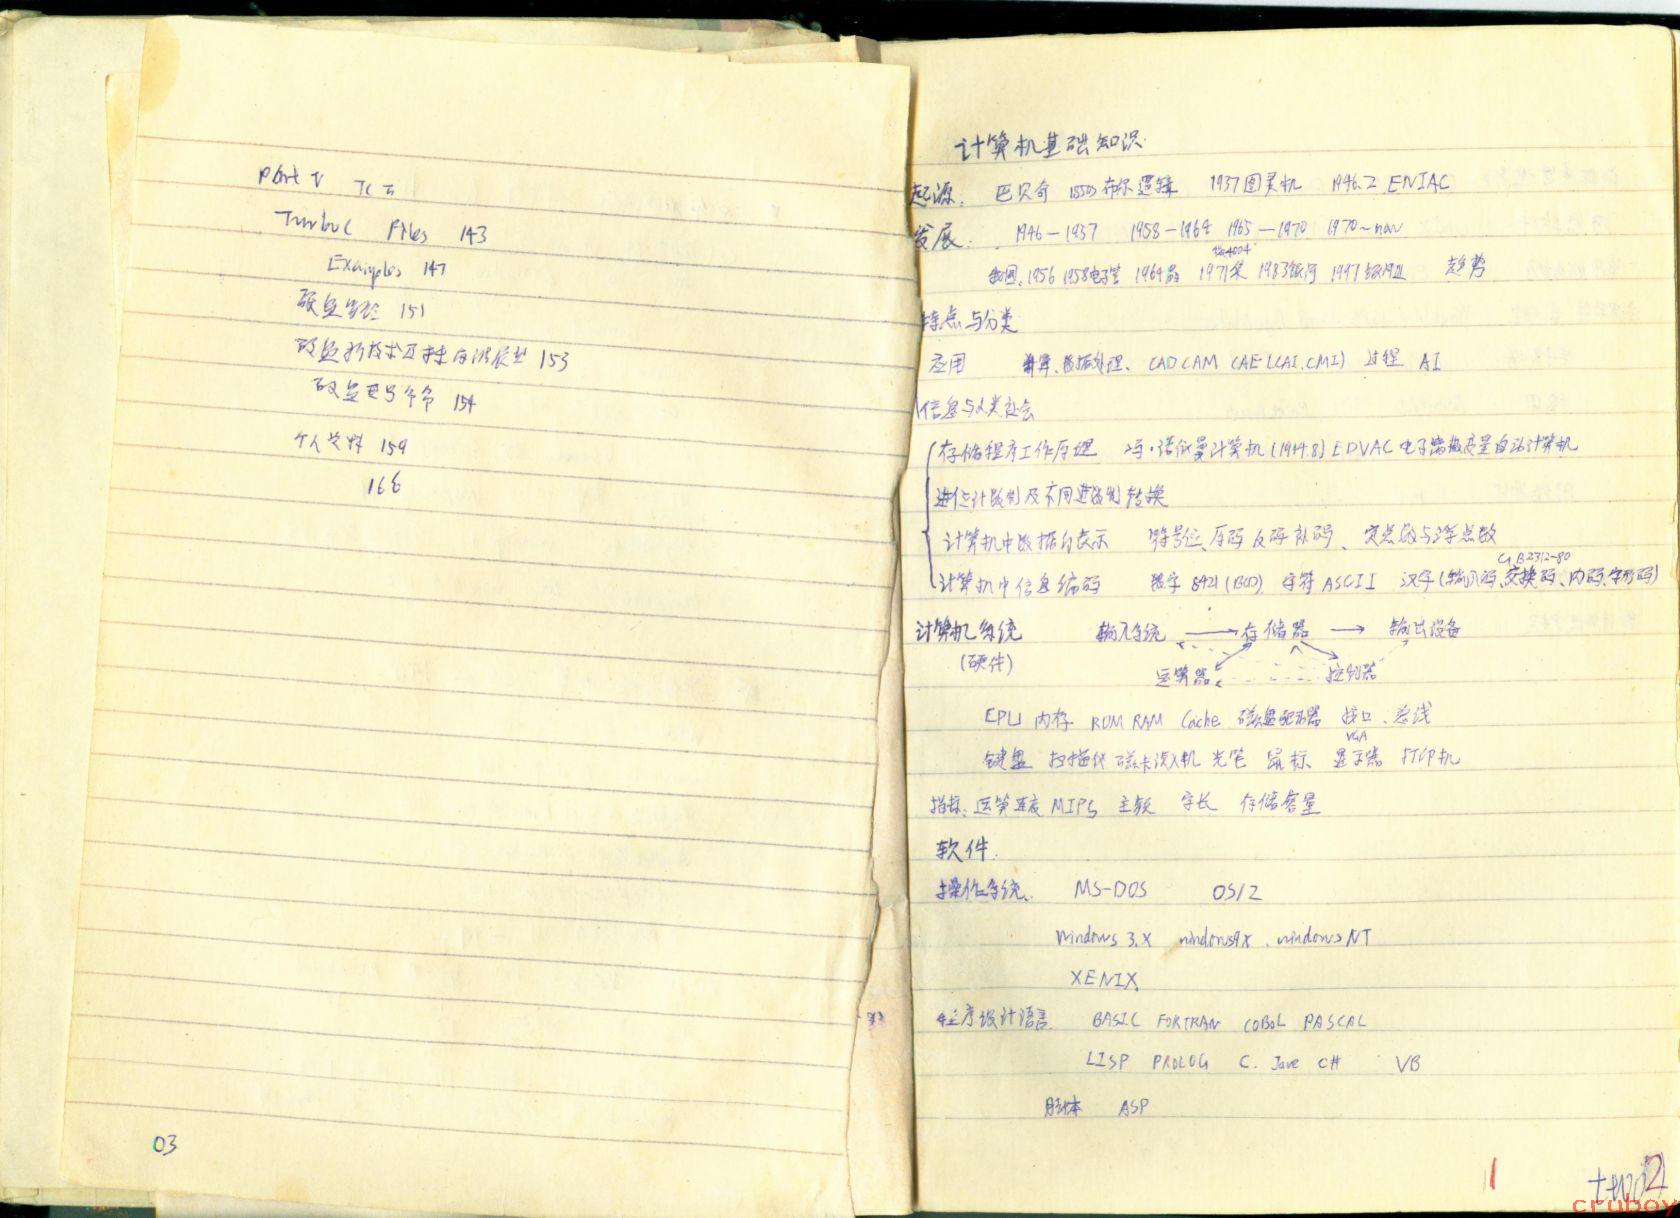 Part V TC
Turbo C Files 143
Examples 147
硬盘 151
硬盘新技术及 153
硬盘型号 154
个人资料 159
166
03
计算机基础知识
起源. 巴贝奇 1850s布尔逻辑 1937图灵机 1946.2 ENIAC
发展. 1946—1957 1958—1964 1965—1970 1970~now
4004
我国. 1956 1958电子管 1964晶 1971集 1983银河 1997银河III 趋势
特点与分类
应用 计算、数据处理、CAD CAM CAE (CAI.CMI) 过程 AI
信息与人类社会
存储程序工作原理 冯·诺依曼计算机 (1944.8) EDVAC 电子离散变量自动计算机
进位计数制及不同进数制转换
计算机中数据的表示 符号位、原码 反码 补码、定点数与浮点数
GB2312-80
计算机中信息编码 数字 8421 (BCD) 字符 ASCII 汉字 (输入码、交换码、内码、字形码)
计算机系统 输入系统 → 存储器 → 输出设备
(硬件) 运算器 控制器
CPU 内存 ROM RAM Cache 磁盘驱动器 接口、总线
VGA
键盘 扫描仪 磁卡读入机 光笔 鼠标 显示器 打印机
指标、运算速度 MIPS 主频 字长 存储容量
软件.
操作系统. MS-DOS OS/2
Windows 3.X windows9x . windows NT
XENIX
程序设计语言 BASIC FORTRAN COBOL PASCAL
LISP PROLOG C. Java C# VB
脚本 ASP
1
2
cruboy